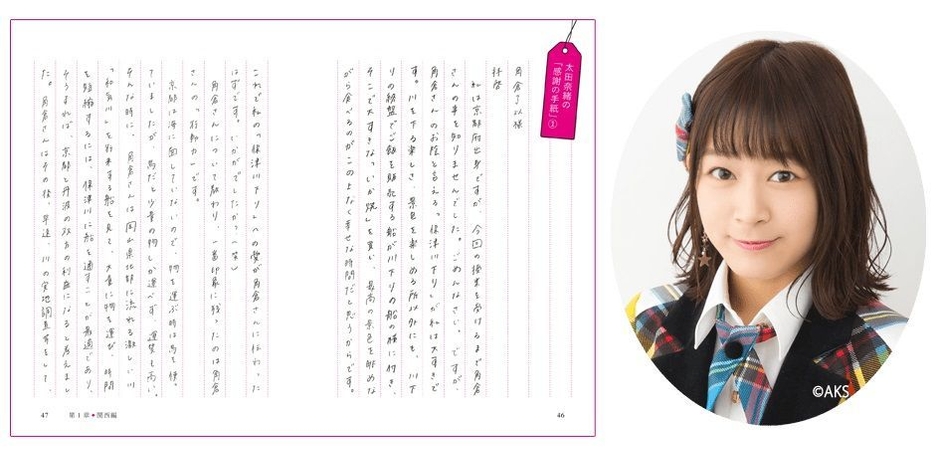 太田奈緒の
「感謝の手紙」①
角倉了以様
拝啓
私は京都府出身ですが、今回の授業を受けるまで角倉
さんの事を知りませんでした。ごめんなさい。ですが、
角倉さんのお陰と言える「保津川下り」が私は大すきで
す。川を下る楽しさ、景色を楽しめる所以外にも、川下
りの終盤でご飯を販売する船が川下りの船の横に付き、
そこで大すきな「いか焼」を買い、最高の景色を眺めな
がら食べるのがこの上なく幸せな時間だと思うからです。
46
これで私の「保津川下り」への愛が角倉さんに伝わった
はずです。いかがでしたかっ(笑)
角倉さんについて教わり、一番印象に残ったのは角倉
さんの「行動力」です。
京都は海に面していないので、物を運ぶ時は馬を使っ
ていましたが、馬だと少量の物しか運べず、運賃も高い。
そんな時に、角倉さんは岡山県北部に流れる激しい川
「和気川」を往来する船を見て、大量に物を運び、時間
を短縮するには、保津川に船を通すことが最適であり、
そうすれば、京都と丹波の双方の利益になると考えまし
た。角倉さんはその後、早速、川の実地調査をして、
47 第1章●関西編
©AKS